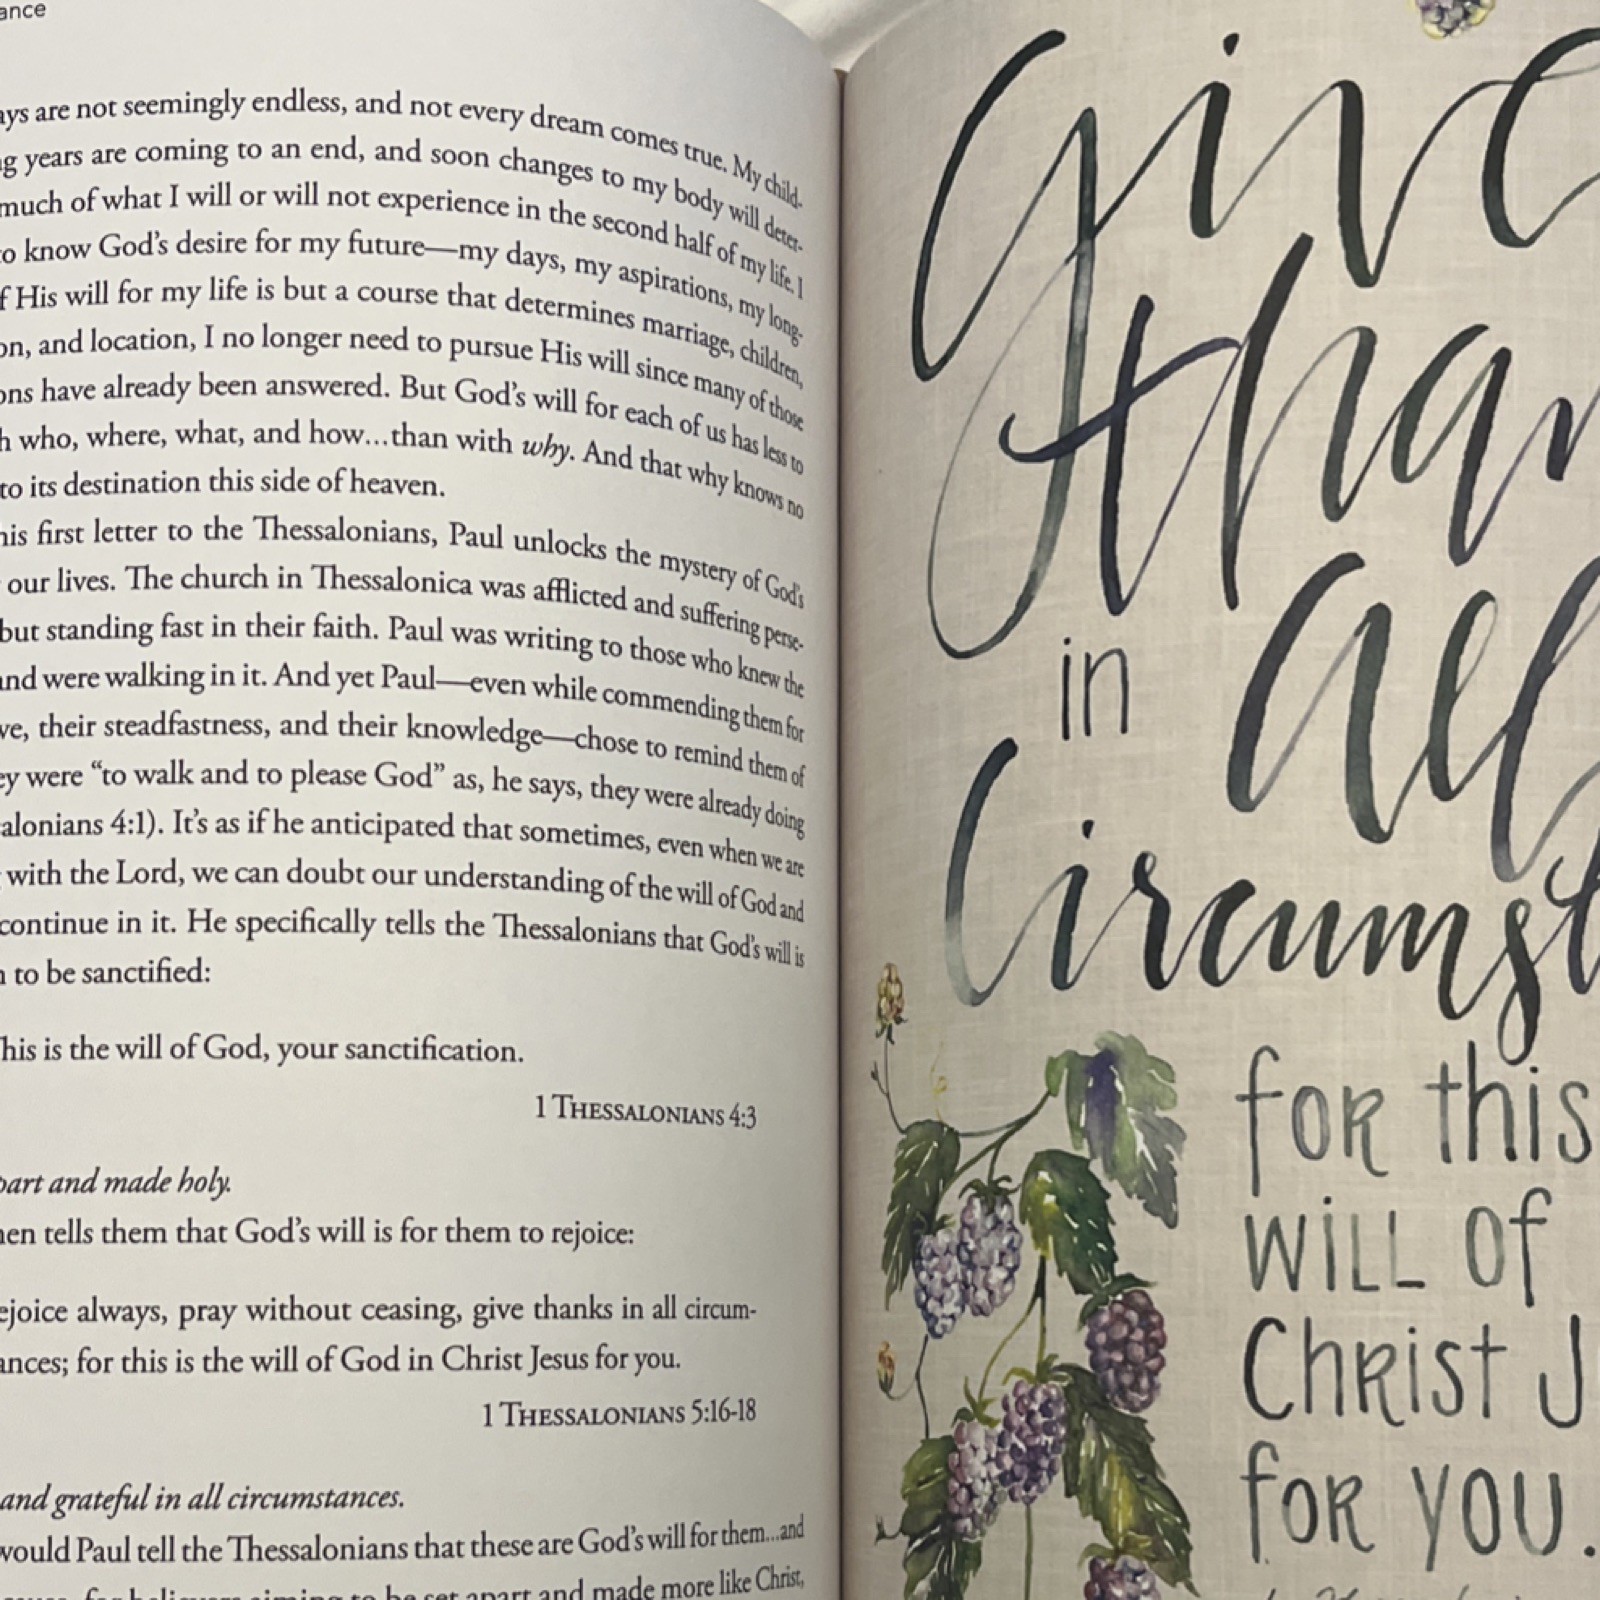 ance
ays are not seemingly endless, and not every dream comes true. My child-
g years are coming to an end, and soon changes to my body will deter-
much of what I will or will not experience in the second half of my life. I
o know God's desire for my future—my days, my aspirations, my long-
f His will for my life is but a course that determines marriage, children,
on, and location, I no longer need to pursue His will since many of those
ons have already been answered. But God's will for each of us has less to
h who, where, what, and how...than with why. And that why knows no
to its destination this side of heaven.
his first letter to the Thessalonians, Paul unlocks the mystery of God's
our lives. The church in Thessalonica was afflicted and suffering perse-
but standing fast in their faith. Paul was writing to those who knew the
and were walking in it. And yet Paul—even while commending them for
ve, their steadfastness, and their knowledge—chose to remind them of
ey were “to walk and to please God” as, he says, they were already doing
alonians 4:1). It's as if he anticipated that sometimes, even when we are
with the Lord, we can doubt our understanding of the will of God and
continue in it. He specifically tells the Thessalonians that God's will is
n to be sanctified:
his is the will of God, your sanctification.
1 Thessalonians 4:3
part and made holy.
hen tells them that God's will is for them to rejoice:
ejoice always, pray without ceasing, give thanks in all circum-
ances; for this is the will of God in Christ Jesus for you.
1 Thessalonians 5:16-18
and grateful in all circumstances.
would Paul tell the Thessalonians that these are God's will for them...and
for believers aiming to be set apart and made more like Christ,
Give
than
in all
Circumst
for this
will of
Christ J
for you.